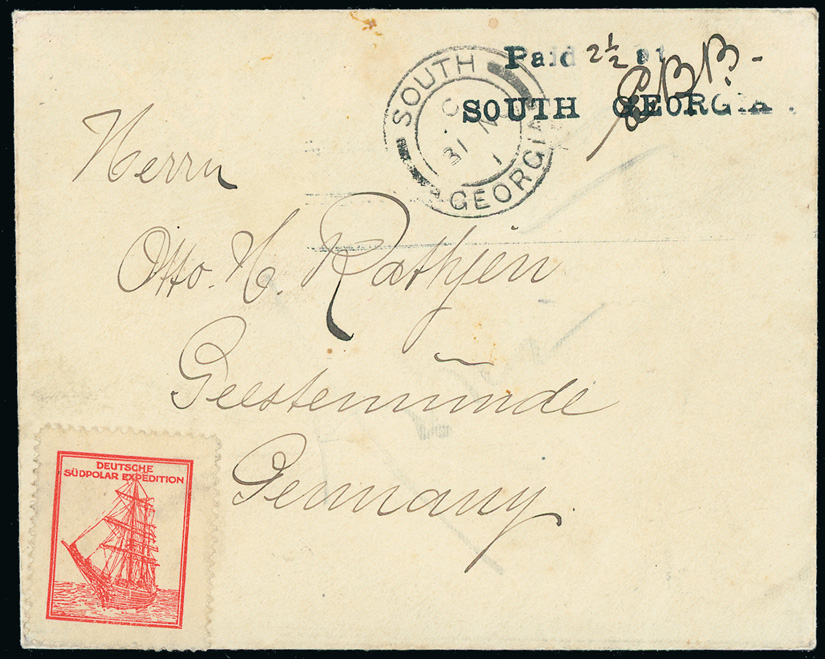 Paid 2½ at
SOUTH GEORGIA.
EBB.
SOUTH GEORGIA
C
31
Herrn
Otto. H. Rathjen
Geestemünde
Germany.
DEUTSCHE
SÜDPOLAR EXPEDITION